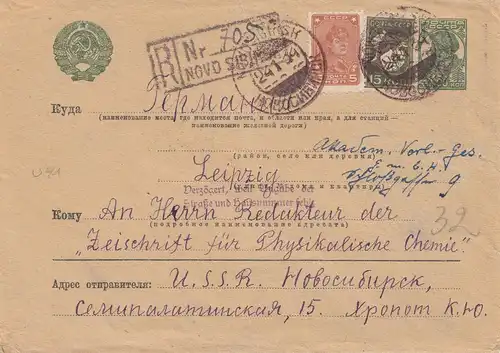 R Nr 705
NOVOSIBIRSK
СССР
5
15
Куда Германия
(наименование места, где находится почта, и области или края, а для станций —
наименование железной дороги)
Akadem. Verl. Ges.
(район, село или деревня)
m. b. H.
Leipzig
9
Verzögert, weil Angabe der
Straße und Hausnummer fehlt
32
Кому An Herrn Redakteur der
(подробное наименование адресата)
"Zeischrift für Physikalische Chemie"
Адрес отправителя: U.S.S.R. Новосибирск,
Семипалатинская, 15. Хропот К.Ю.